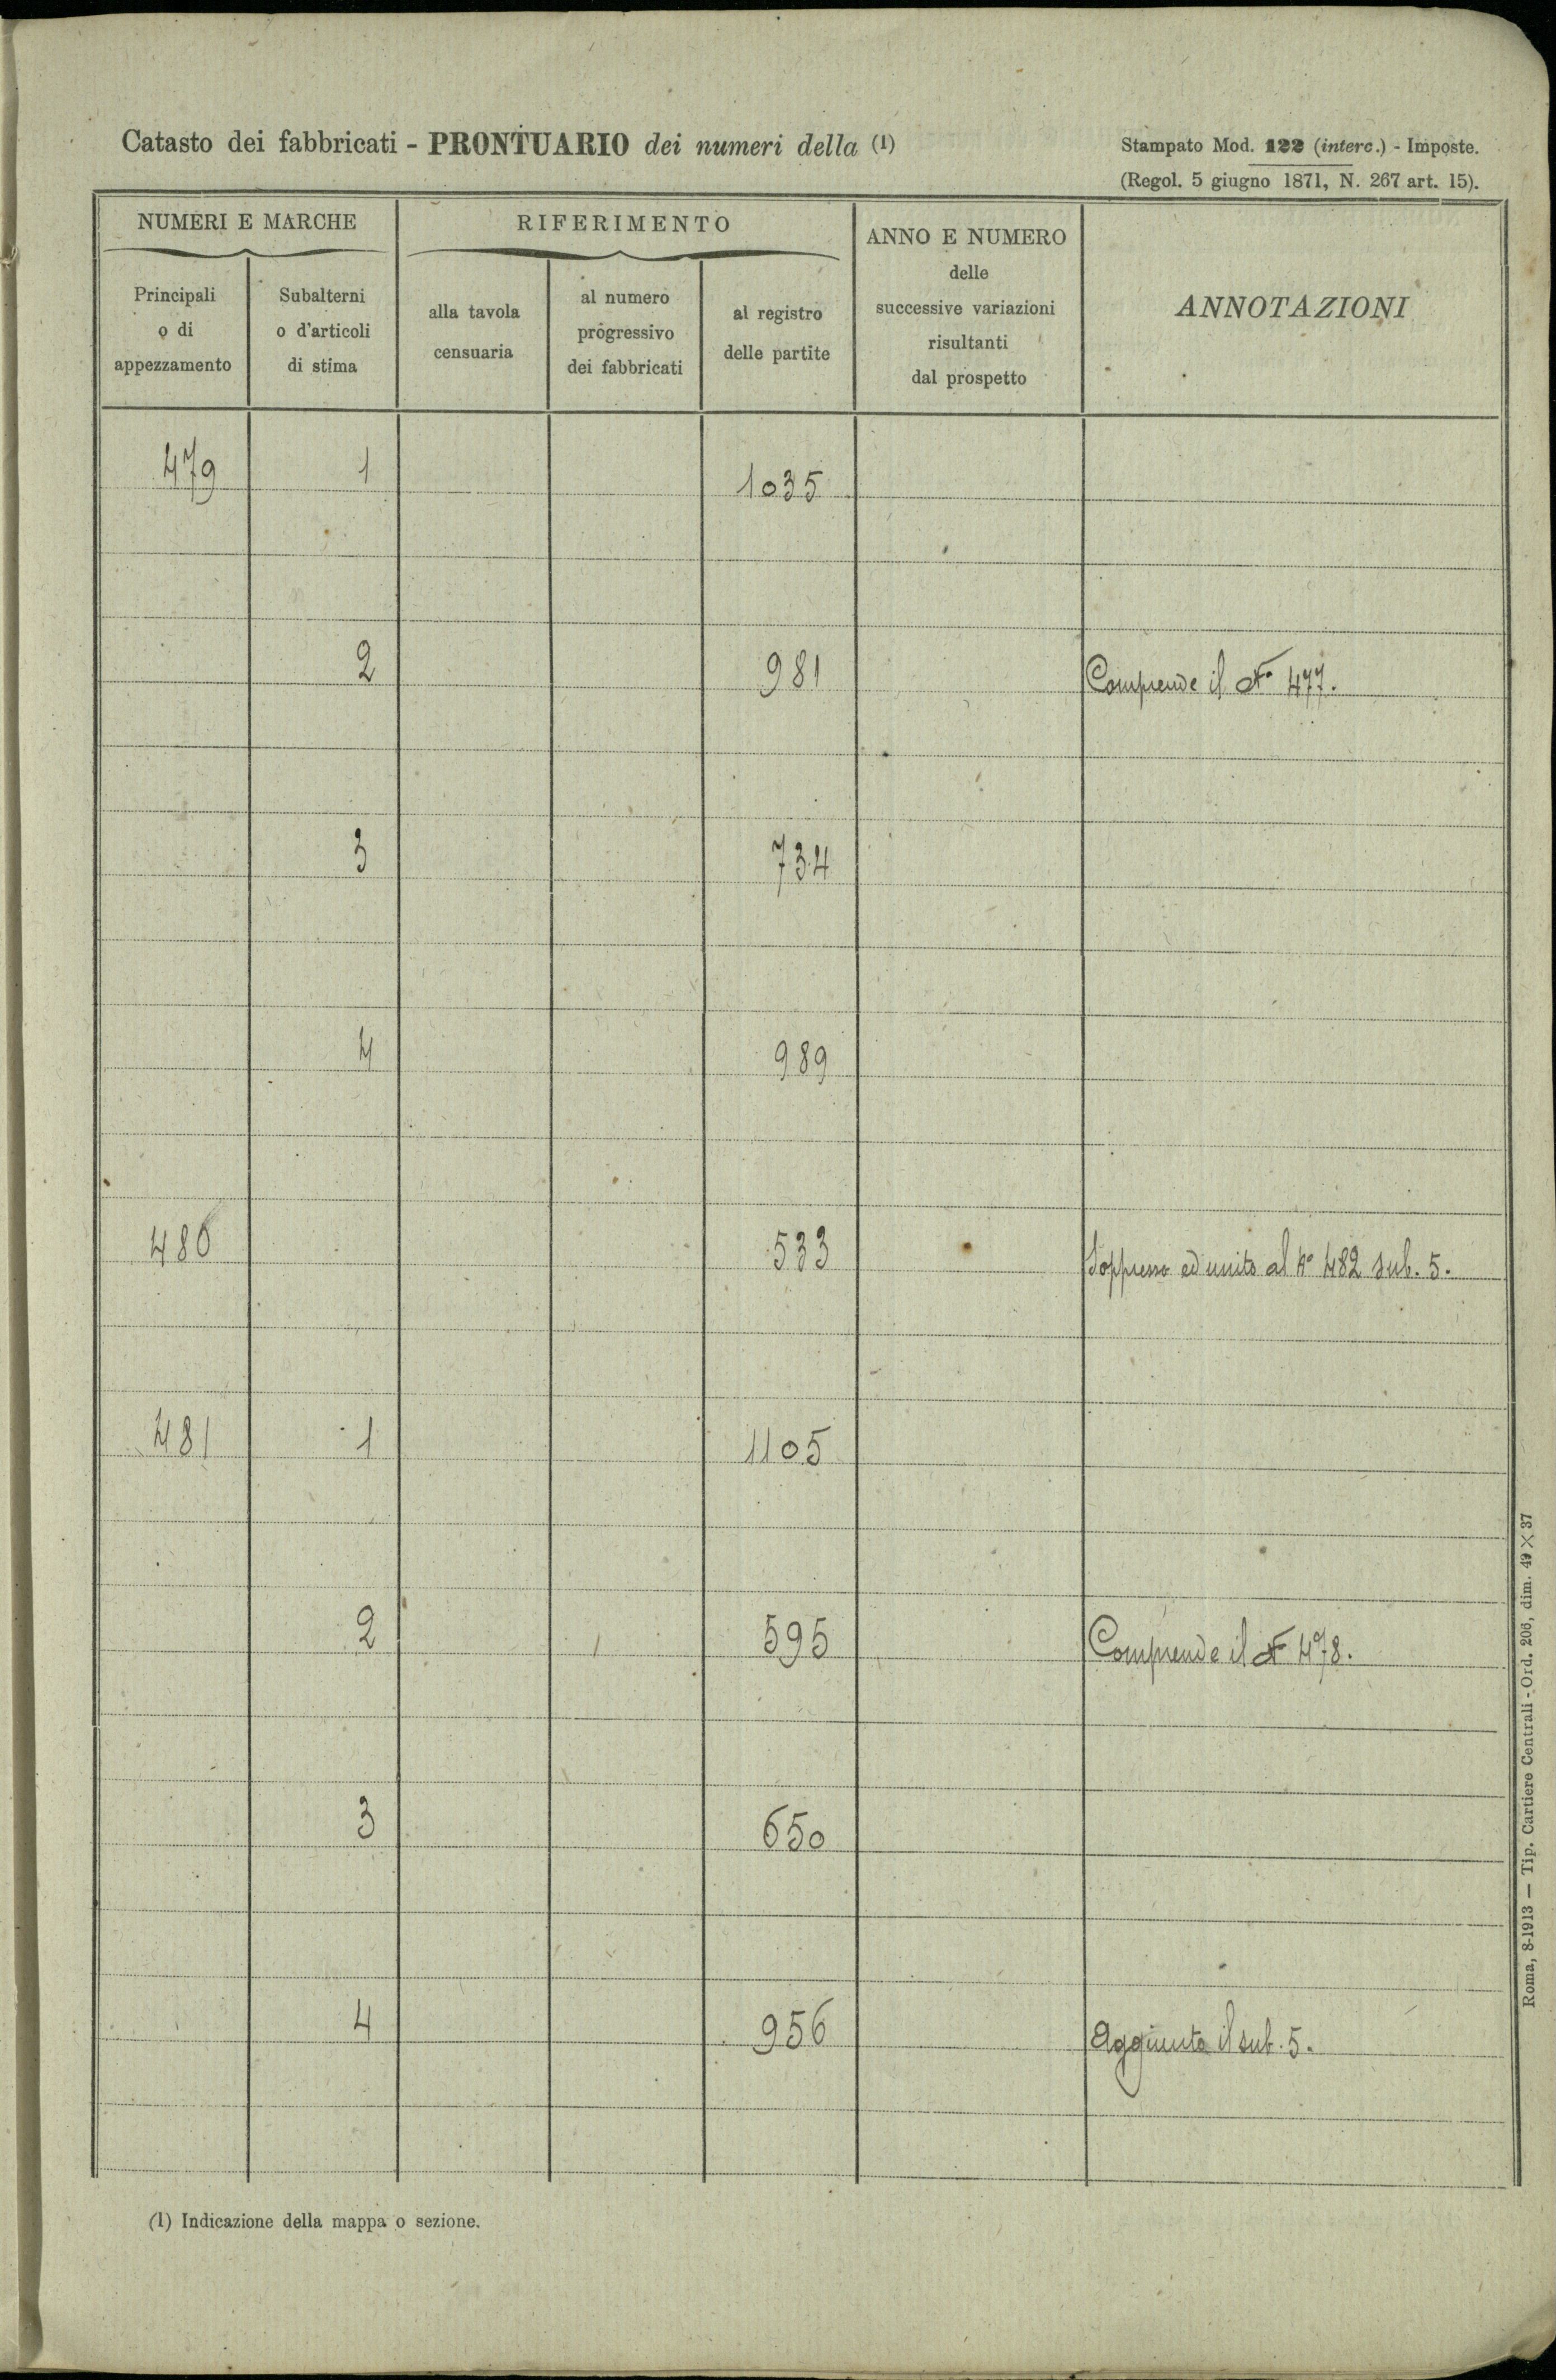 Catasto dei fabbricati - PRONTUARIO dei numeri della (1)
Stampato Mod. 122 (interc.) - Imposte.
(Regol. 5 giugno 1871, N. 267 art. 15).
NUMERI E MARCHE
RIFERIMENTO
ANNO E NUMERO
delle
successive variazioni
risultanti
dal prospetto
ANNOTAZIONI
Principali
o di
appezzamento
Subalterni
o d'articoli
di stima
alla tavola
censuaria
al numero
progressivo
dei fabbricati
al registro
delle partite
479 1 1035
2 981 Comprende il N° 477.
3 734
4 989
480 533 Soppresso ed unito al N° 482 sub. 5.
481 1 1105
2 595 Comprende il N° 478.
3 650
4 956 Aggiunto il sub. 5.
(1) Indicazione della mappa o sezione.
Roma, 8-1913 — Tip. Cartiere Centrali - Ord. 206, dim. 49 × 37